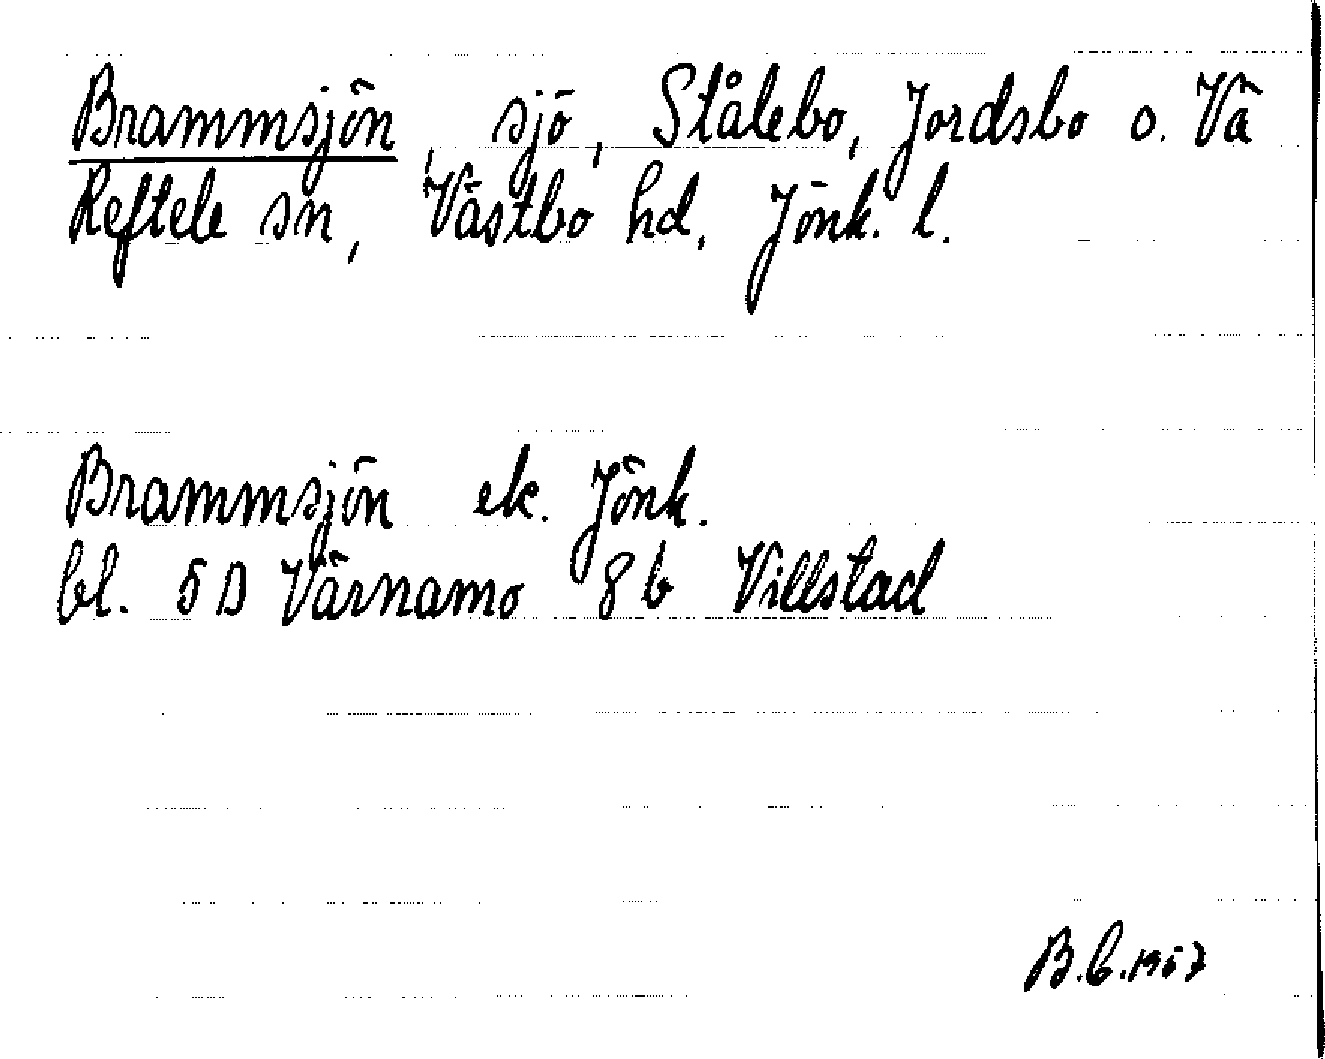 Brammsjön, sjö, Stålebo, Jordsbo o. Vä
Reftele sn, Västbo hd, Jönk. l.
Brammsjön ek. Jönk.
bl. 5 D Värnamo 8 b Villstad
B.C. 1957